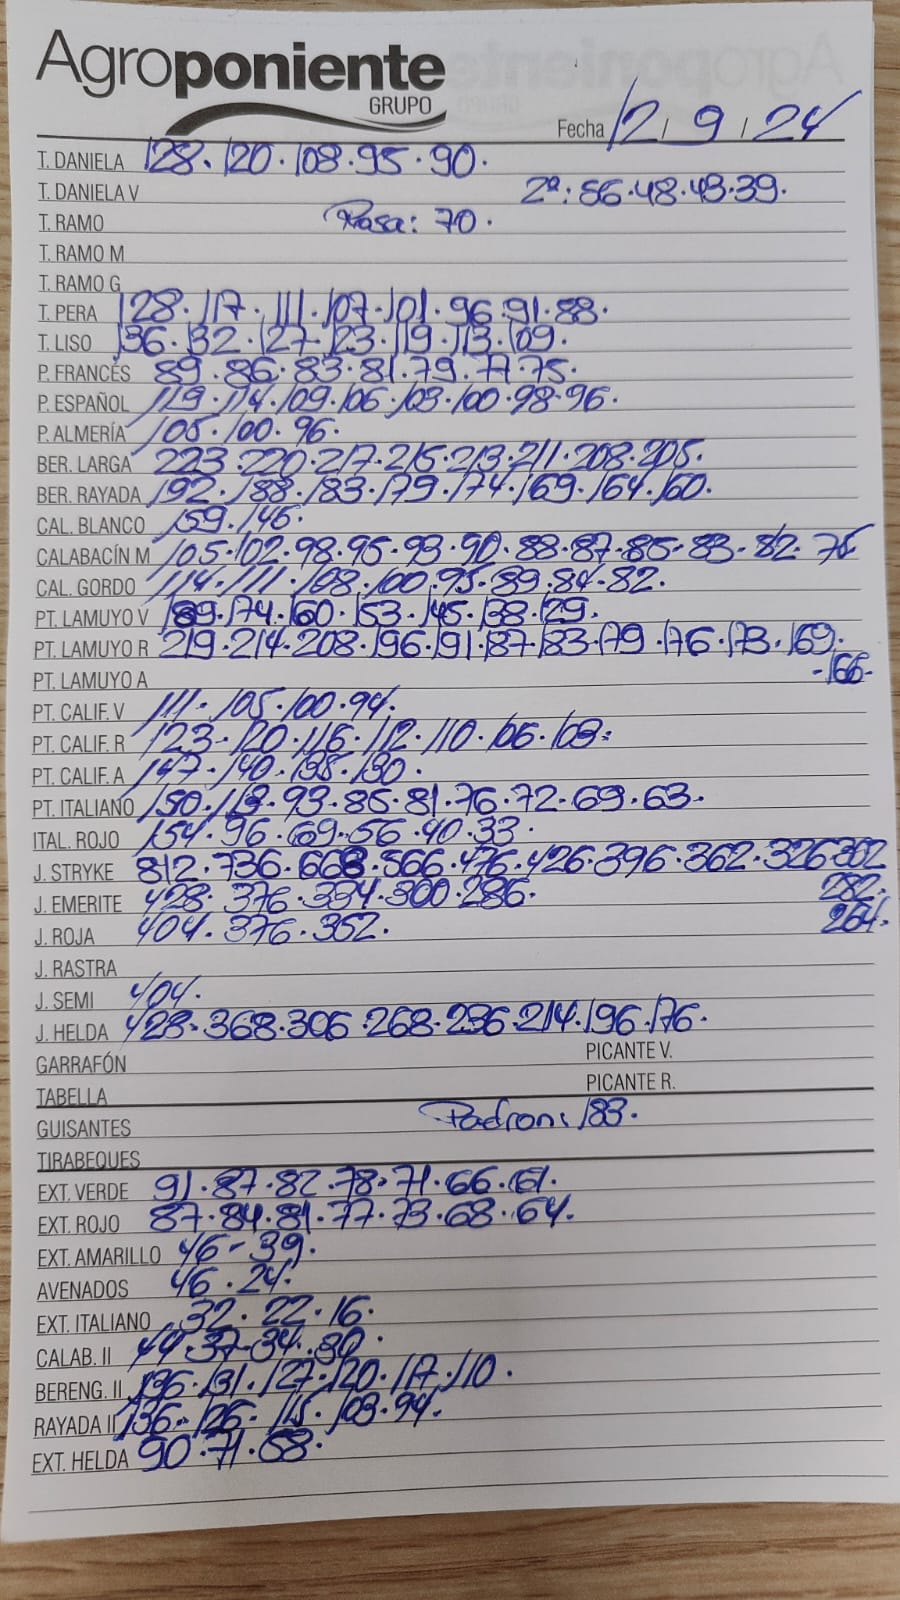 Agroponiente
GRUPO
Fecha 12/9/24
T. DANIELA 128. 120. 108. 95. 90.
T. DANIELA V 2ª: 56. 48. 43. 39.
T. RAMO Rosa: 70.
T. RAMO M
T. RAMO G
T. PERA 128. 117. 111. 107. 101. 96. 91. 88.
T. LISO 136. 132. 127. 123. 119. 113. 109.
P. FRANCÉS 89. 86. 83. 81. 79. 77. 75.
P. ESPAÑOL 119. 114. 109. 106. 103. 100. 98. 96.
P. ALMERÍA 105. 100. 96.
BER. LARGA 223. 220. 217. 215. 213. 211. 208. 205.
BER. RAYADA 192. 188. 183. 179. 174. 169. 164. 160.
CAL. BLANCO 159. 146.
CALABACÍN M 105. 102. 98. 95. 93. 90. 88. 87. 85. 83. 82. 76
CAL. GORDO 114. 111. 108. 100. 95. 89. 84. 82.
PT. LAMUYO V 189. 174. 160. 153. 145. 138. 129.
PT. LAMUYO R 219. 214. 208. 196. 191. 187. 183. 179. 176. 173. 169.
PT. LAMUYO A -166-
PT. CALIF. V 111. 105. 100. 94.
PT. CALIF. R 123. 120. 116. 112. 110. 106. 103.
PT. CALIF. A 147. 140. 135. 130.
PT. ITALIANO 150. 113. 93. 85. 81. 76. 72. 69. 63.
ITAL. ROJO 154. 96. 69. 56. 40. 33.
J. STRYKE 812. 736. 668. 566. 476. 426. 396. 362. 326 302
J. EMERITE 428. 376. 334. 300. 286. 282.
J. ROJA 404. 376. 352. 264.
J. RASTRA
J. SEMI 404.
J. HELDA 428. 368. 306. 268. 236. 214. 196. 176.
GARRAFÓN PICANTE V.
TABELLA PICANTE R.
GUISANTES Padron: 183.
TIRABEQUES
EXT. VERDE 91. 87. 82. 78. 71. 66. 61.
EXT. ROJO 87. 84. 81. 77. 73. 68. 64.
EXT. AMARILLO 46 - 39.
AVENADOS 46. 24.
EXT. ITALIANO 32. 22. 16.
CALAB. II 44. 37. 34. 30.
BERENG. II 136. 131. 127. 120. 117. 110.
RAYADA II 136. 126. 115. 103. 94.
EXT. HELDA 90. 71. 58.